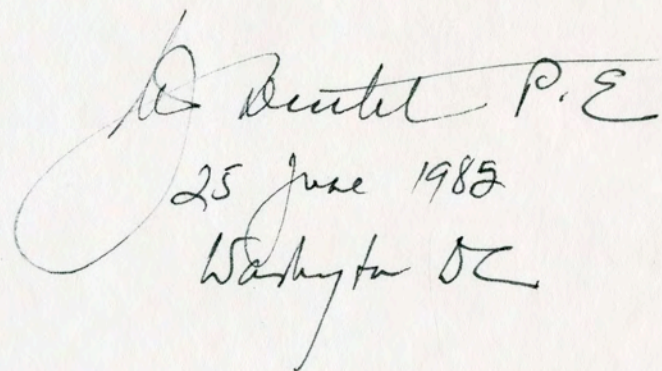 P.E
25 June 1985
Washington DC